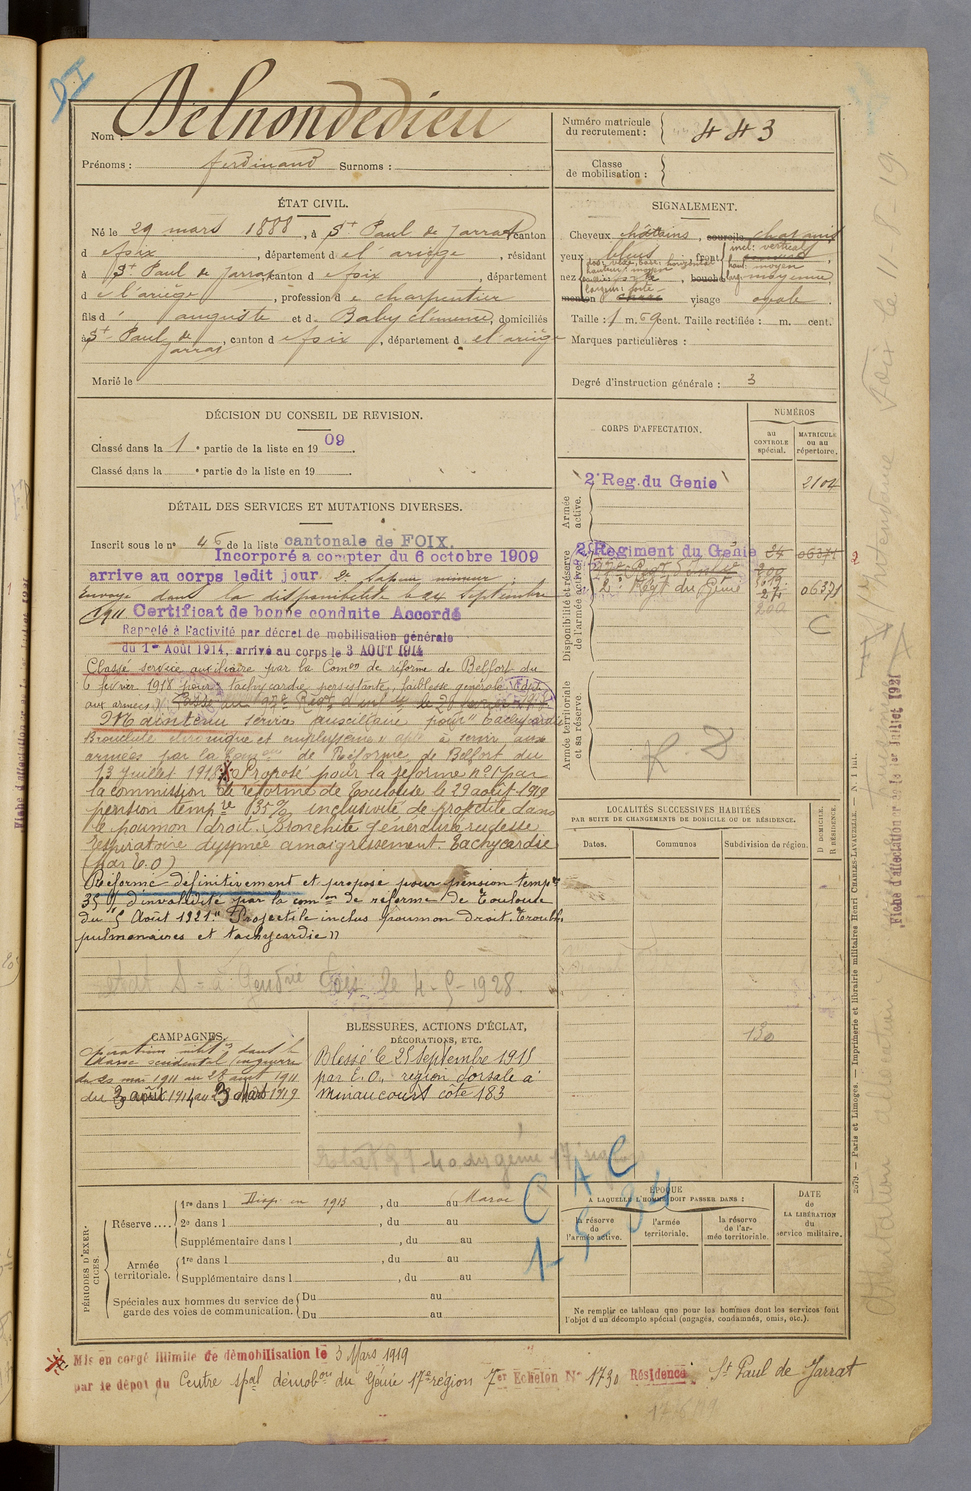 Nom : Delnondedieu
Prénoms : Ferdinand Surnoms :
Numéro matricule du recrutement : 443
Classe de mobilisation :
ÉTAT CIVIL.
Né le 29 mars 1888, à St Paul de Jarrat canton
d e foix, département d e l'ariège, résidant
à St Paul de Jarrat, canton d e foix, département
d e l'ariège, profession d e charpentier
fils d' auguste et d. Baby clémence, domiciliés
à St Paul de Jarrat, canton d e foix, département d e l'ariège
Marié le
SIGNALEMENT.
Cheveux châtains, sourcils chatains
yeux bleus, front incl: vertical
haut: moyen
nez dos: base: horizontal
hauteur: moyen
saillie: forte
largeur: forte, bouche larg: moyenne
menton visage ovale.
Taille : 1 m. 69 cent. Taille rectifiée : m. cent.
Marques particulières :
Degré d'instruction générale : 3
DÉCISION DU CONSEIL DE REVISION.
Classé dans la 1e partie de la liste en 1909.
Classé dans la e partie de la liste en 19 .
CORPS D'AFFECTATION.
NUMÉROS
au CONTROLE spécial.
MATRICULE ou au répertoire.
Armée active.
2e Reg. du Genie 2104
Disponibilité et réserve de l'armée active.
2e Regiment du Génie 24 06371
200
2e Régt du Génie 24 06371
200
C
Armée territoriale et sa réserve.
DÉTAIL DES SERVICES ET MUTATIONS DIVERSES.
Inscrit sous le no 46 de la liste cantonale de FOIX.
Incorporé a compter du 6 octobre 1909
arrive au corps ledit jour 2e Sapeur mineur
Envoyé dans la disponibilité le 24 Septembre
1911 Certificat de bonne conduite Accordé
Rappelé à l'activité par décret de mobilisation générale
du 1er Août 1914, arrivé au corps le 3 AOUT 1914
Classé service auxiliaire par la Comon de réforme de Belfort du
6 fevrier 1918 pour tachycardie persistante, faiblesse generale (apte
aux armées)
Maintenu service auxiliaire pour "tachycardie
Bronchite chronique et emphysème" apte à servir aux
armées par la Comon de Réforme de Belfort du
13 juillet 1918 Proposé pour la reforme no 1 par
la commission de réforme de Toulouse le 29 août 1919
pension tempre 35% inclusivité de projectile dans
le poumon droit. Bronchite généralisée rudesse
respiratoire dyspnée amaigrissement. Tachycardie
(par E.O)
Réformé définitivement et proposé pour pension tempre
35% d'invalidité par la comon de reforme de Toulouse
du 5 Août 1921. "Projectile inclus poumon droit Troubles
pulmonaires et tachycardie"
Gendrie Foix le 4-5-1928.
LOCALITÉS SUCCESSIVES HABITÉES
PAR SUITE DE CHANGEMENTS DE DOMICILE OU DE RÉSIDENCE.
Dates. Communes Subdivision de région.
D DOMICILE.
R RÉSIDENCE.
130
CAMPAGNES.
Opérations milit. dans le
Maroc occidental (en guerre
du 20 mai 1911 au 28 août 1911
du 3 août 1914 au 3 Mars 1919
BLESSURES, ACTIONS D'ÉCLAT,
DÉCORATIONS, ETC.
Blessé le 25 Septembre 1915
par E.O. région dorsale à
Minaucourt côte 183
CAC
1-5-34
PÉRIODES D'EXERCICES.
Réserve ....
1re dans l Disp. en 1913, du au Maroc
2e dans l , du au
Supplémentaire dans l , du au
Armée territoriale.
1re dans l , du au
Supplémentaire dans l , du au
Spéciales aux hommes du service de garde des voies de communication.
Du au
Du au
ÉPOQUE
A LAQUELLE L'HOMME DOIT PASSER DANS :
la réserve de l'armée active.
l'armée territoriale.
la réserve de l'armée territoriale.
DATE de LA LIBÉRATION du service militaire.
Ne remplir ce tableau que pour les hommes dont les services font
l'objet d'un décompte spécial (engagés, condamnés, omis, etc.).
Mis en congé illimité de démobilisation le 3 Mars 1919
par le dépot du Centre spal démobon du Génie 17e région 7er Echelon No 1730 Résidence St Paul de Jarrat
2579. — Paris et Limoges. — Imprimerie et librairie militaires Henri CHARLES-LAVAUZELLE. — N. 1 bis.
Fiche d'affectation er le 1er Juillet 1921